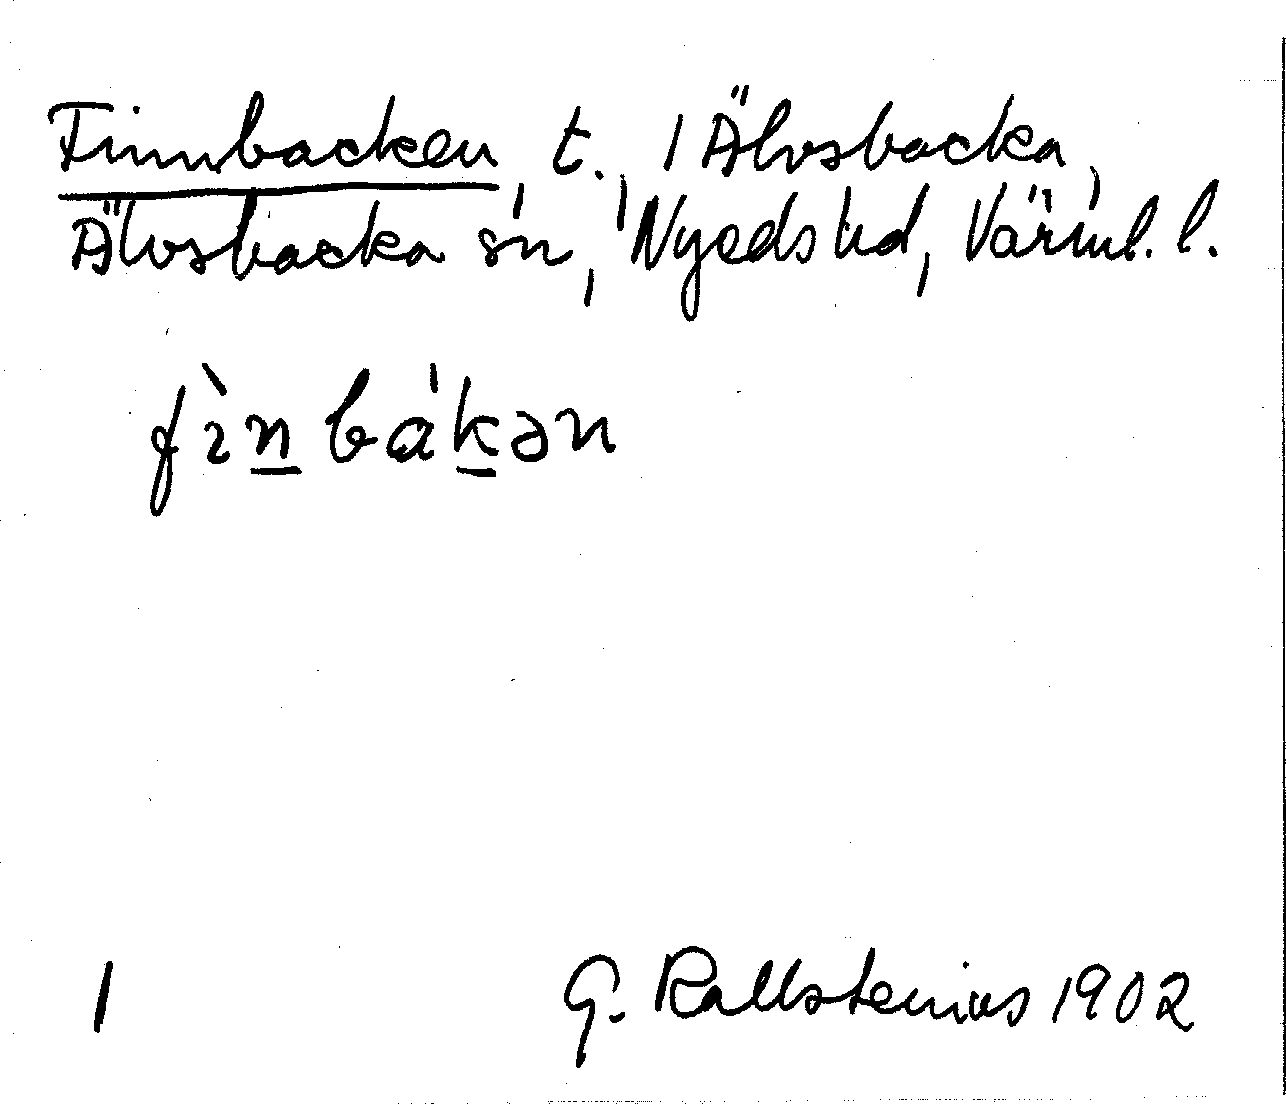 Finnbacken, t., 1 Älvsbacka,
Älvsbacka sn, Nyeds hd, Värml. l.
fìn̲bák̲ən
1
G. Kallstenius 1902